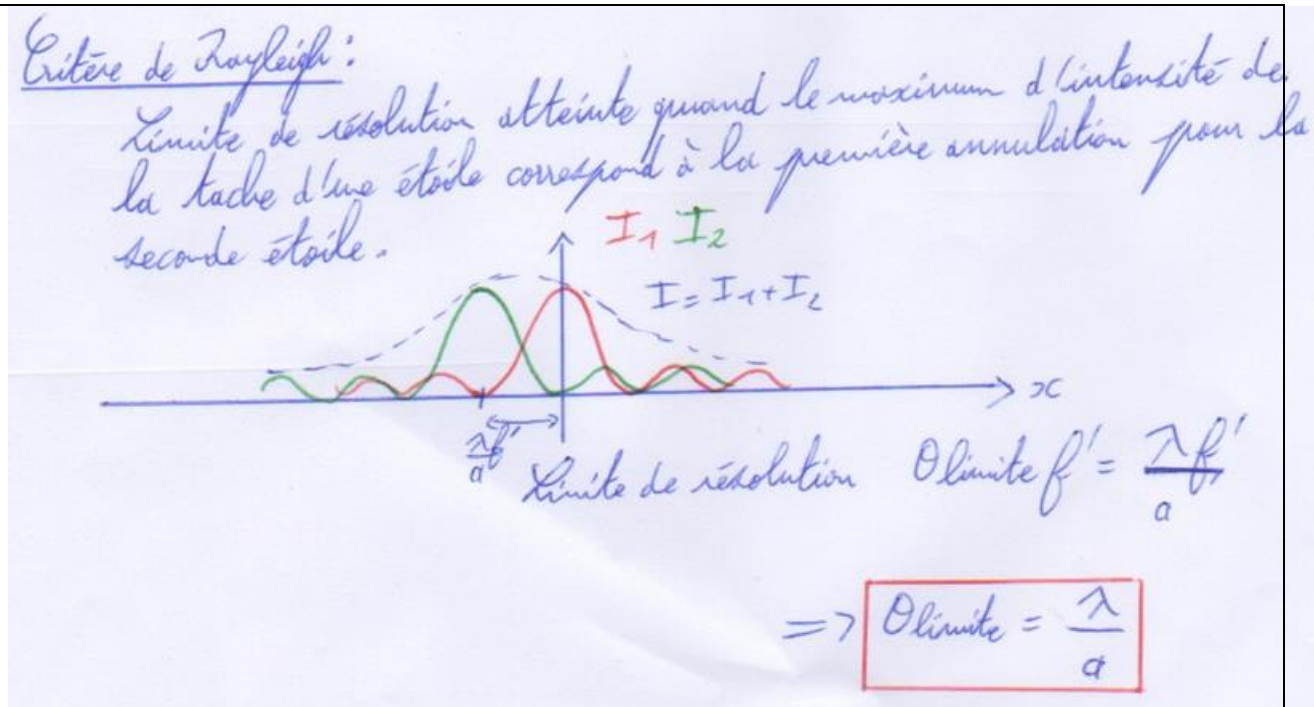 Critère de Rayleigh :
Limite de résolution atteinte quand le maximum d'intensité de
la tache d'une étoile correspond à la première annulation pour la
seconde étoile.
I₁ I₂
I = I₁ + I₂
x
λf'/a
Limite de résolution θlimite f' = λf'/a
=> θlimite = λ/a